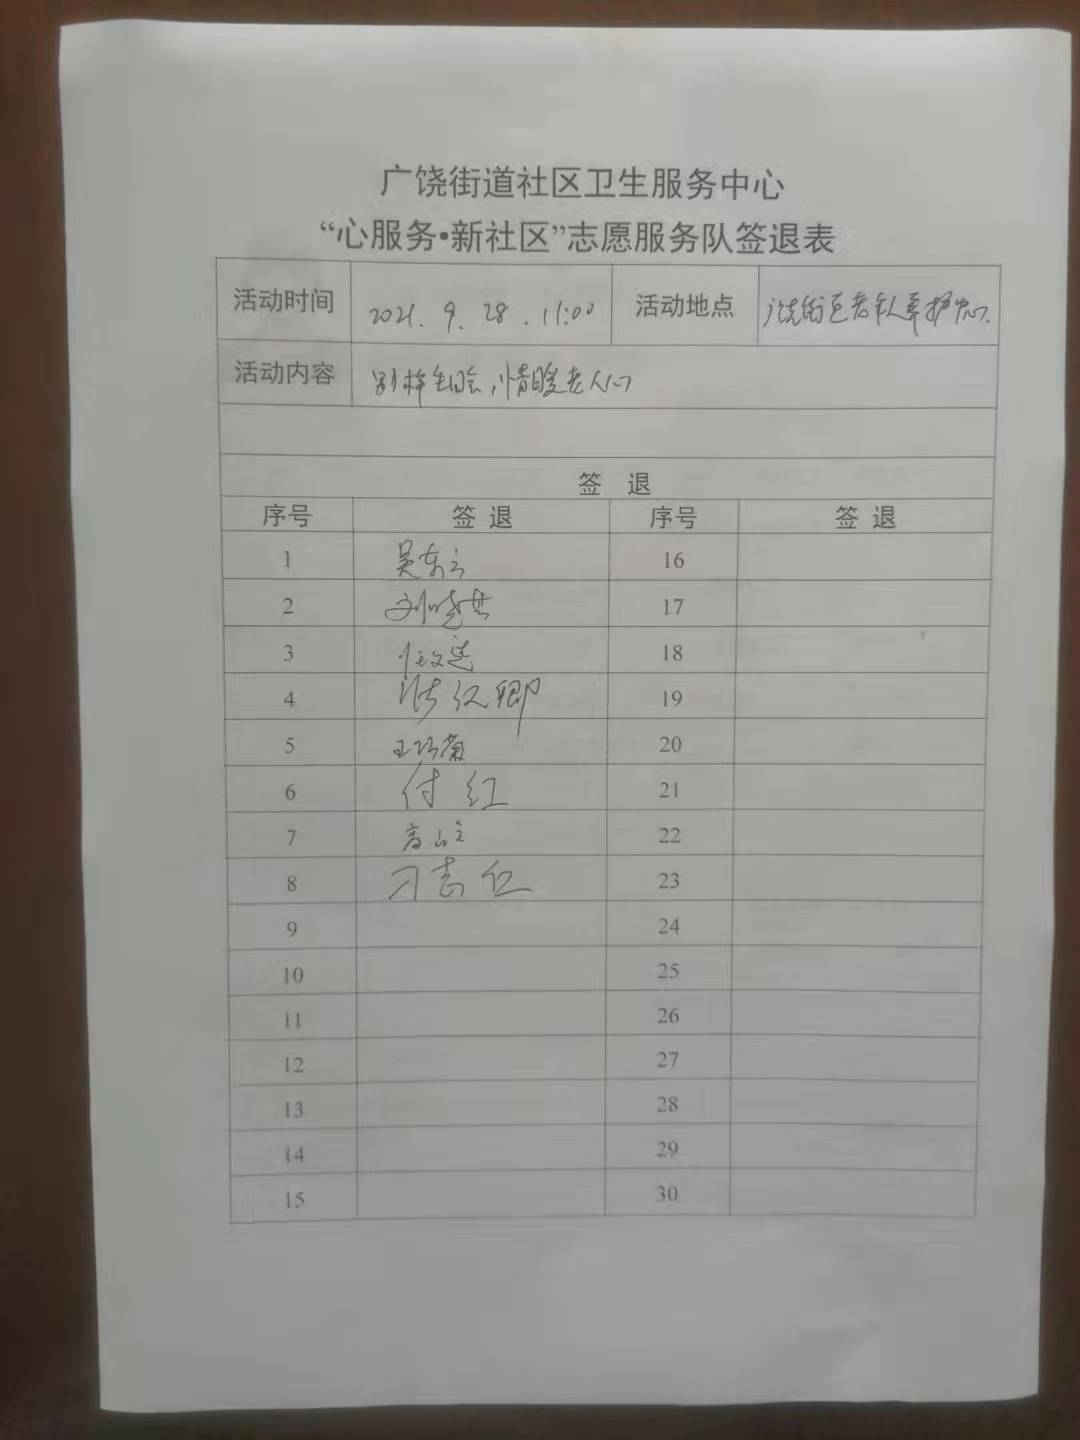 广饶街道社区卫生服务中心
“心服务•新社区”志愿服务队签退表
活动时间 2021.9.28.11:00 活动地点 广饶街区老年人养护中心.
活动内容 别样生日会,情暖老人心
签 退
序号 签 退 序号 签 退
1 吴东云 16
2 刘晓芸 17
3 任文莲 18
4 张红卿 19
5 王巧菊 20
6 付红 21
7 高 22
8 刁志红 23
9 24
10 25
11 26
12 27
13 28
14 29
15 30